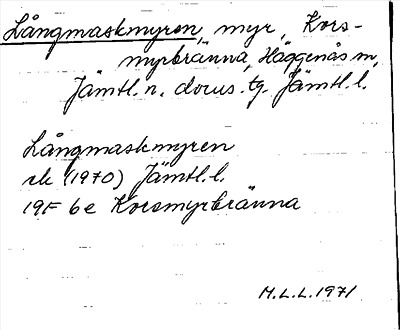 Långmaskmyren, myr, Kors-
myrbränna, Häggenås sn,
Jämtl. n. doms. tg. Jämtl. l.
Långmaskmyren
rk (1970) Jämtl. l.
19F 6e Korsmyrbränna
M.L.L. 1971